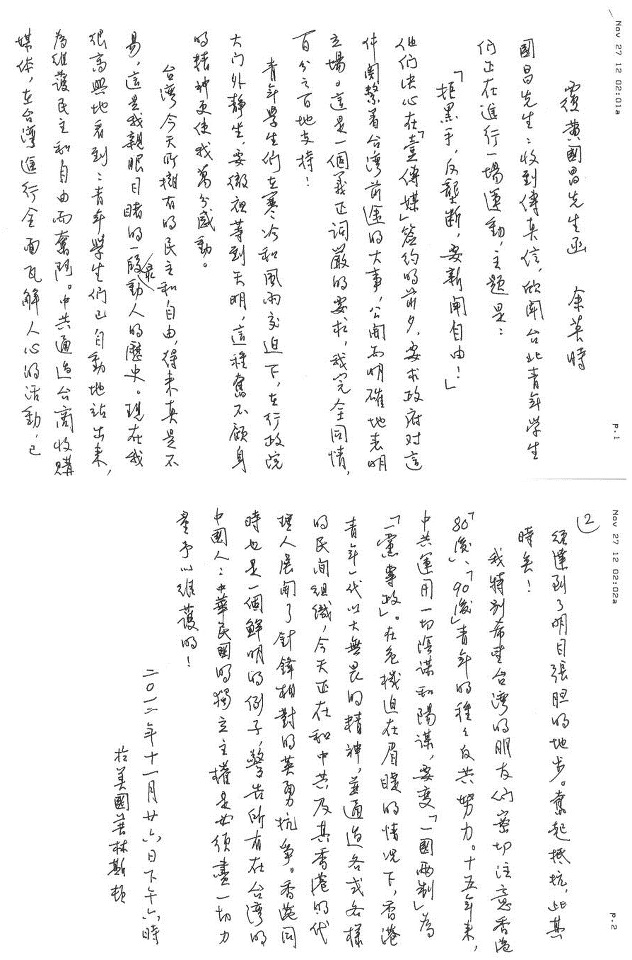 Nov 27 12 02:01a
p.1
覆黃國昌先生函 余英時
國昌先生:收到傳真信,欣聞台北青年学生
们正在進行一場運動,主題是:
「拒黑手,反壟断,要新聞自由!」
他们决心在「壹傳媒」簽約的前夕,要求政府对這
件関繫着台湾前途的大事,公開而明確地表明
立場。這是一個義正詞嚴的要求,我完全同情,
百分之百地支持!
青年學生們在寒冷和風雨交迫下,在行政院
大门外静坐,要徹夜等到天明,這種奮不顧身
的精神更使我萬分感動。
台湾今天所擁有的民主和自由,得来真是不
易,這是我親眼目睹的一段最動人的歷史。現在我
很高興地看到:青年學生们已自動地站出来,
為維護民主和自由而奮鬥。中共通過台商收購
媒体,在台灣進行全面瓦解人心的活動,已
Nov 27 12 02:02a
p.2
②
經達到了明目張胆的地步。奮起抵抗,此其
時矣!
我特別希望台湾的朋友们密切注意香港
「80後」、「90後」青年的種々反共努力。十五年来,
中共運用一切陰謀和陽謀,要变「一國兩制」為
「一黨專政」。在危機迫在眉睫的情况下,香港
青年一代以大無畏的精神,並通過各式各樣
的民间組織,今天正在和中共及其香港的代
理人展開了針鋒相對的英勇抗争。香港同
時也是一個鮮明的例子,警告所有在台湾的
中國人:中華民國的獨立主權是必須盡一切力
量予以維護的!
二〇一二年十一月廿六日下午六時
於美國普林斯頓